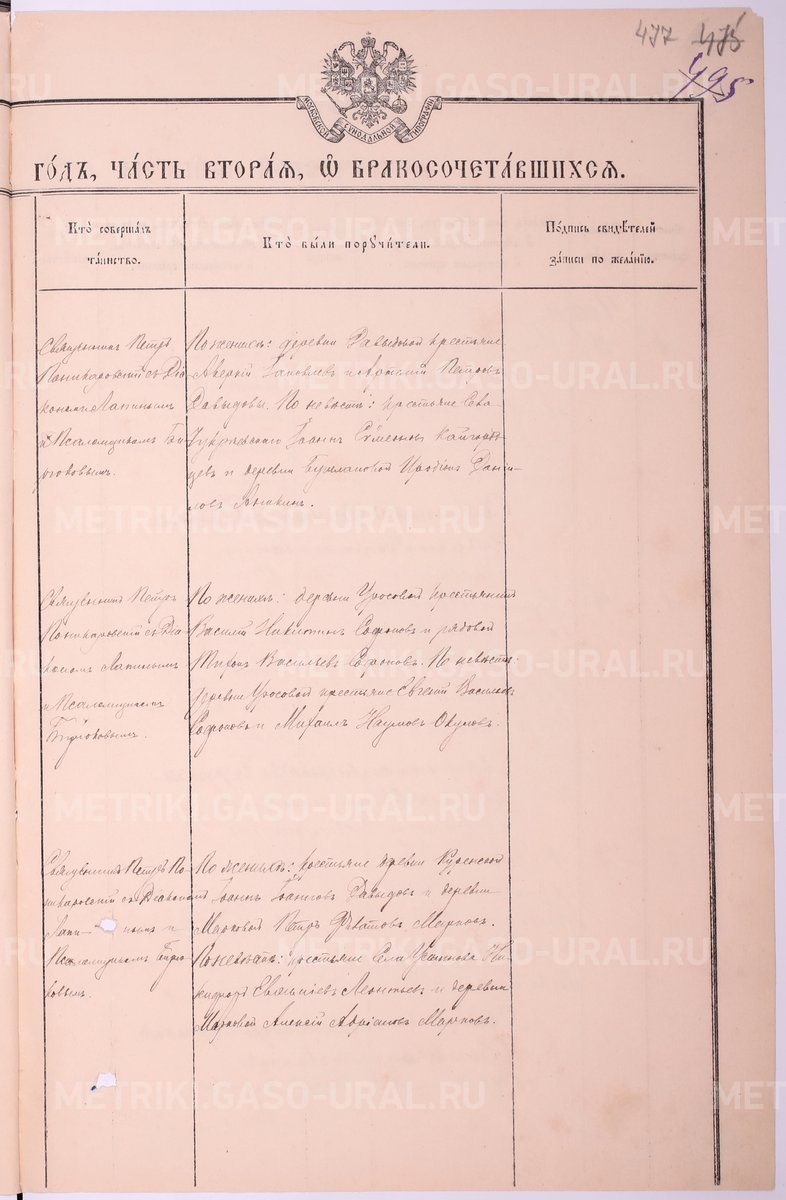 477 475
495
МОСКОВСКОЙ СѴНОДАЛЬНОЙ ТИПОГРАФІИ
ГО́ДЪ, ЧА́СТЬ ВТОРА́Я, Ѽ БРАКОСОЧЕТА́ВШИХСЯ.
Кто̀ совершалъ
та́инство.
Кто̀ бы́ли порꙋчи́тели.
По́дпись свидѣ́телей
за́писи по жела́нію.
Священникъ Петръ
Поникаровскій съ Діа-
кономъ Лапинымъ
и Псаломщикомъ Би-
рюковымъ.
По женихѣ: деревни Давыдовой крестьяне
Аверкій Іаковлевъ и Петровъ
Давыдовы. По невѣстѣ: крестьяне Села
Іоаннъ Симеоновъ Кайгород-
цевъ и деревни Иродіонъ Дани-
ловъ
Священникъ Петръ
Поникаровскій съ Діа-
кономъ Лапинымъ
и Псаломщикомъ
Бирюковымъ.
По женихѣ: деревни Уросовой крестьянинъ
Василій Никитинъ Софоновъ и рядовой
Миронъ Васильевъ Софоновъ. По невѣстѣ:
деревни Уросовой крестьяне Евгеній Васильевъ
Софоновъ и Михаилъ Наумовъ Окуловъ.
Священникъ Петръ По-
никаровскій съ Діакономъ
Лапи- нымъ и
Псаломщикомъ Бирю-
ковымъ.
По женихѣ: крестьяне деревни
Іоаннъ Іоанновъ Давыдовъ и деревни
Марковой Петръ Марковъ.
По невѣстѣ: крестьяне Села Ни-
кифоръ Леонтьевъ и деревни
Марковой Алексій Адріановъ Марковъ.
METRIKI.GASO-URAL.RU